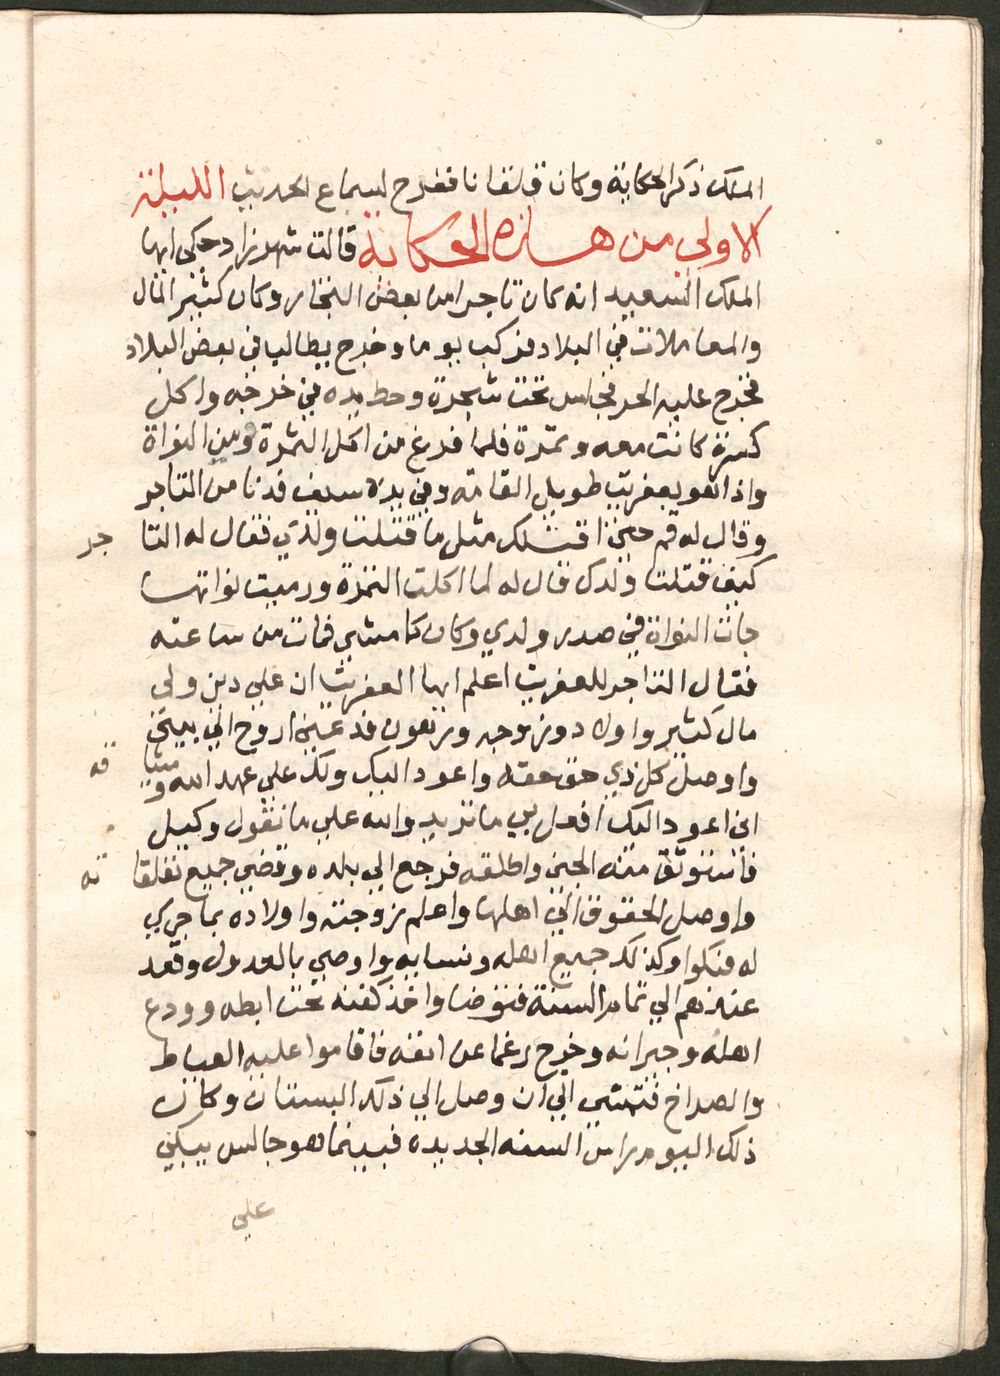 الملك ذكر الحكاية وكان قلقانا ففرح لسماع الحديث الليلة
الاولى من هذه الحكاية قالت شهرزاد حكى ايها
الملك السعيد انه كان تاجرا من بعض التجار وكان كثير المال
والمعاملات في البلاد فركب يوما وخرج يطالب في بعض البلاد
فخرج عليه الحر فجلس تحت شجرة وحط يده في خرجه واكل
كسرة كانت معه وتمرة فلما فرغ من اكل التمرة ومن النواة
واذا هو بعفريت طويل القامة وفي يده سيف فدنا من التاجر
وقال له قم حتى اقتلك مثل ما قتلت ولدي فقال له التا جر
كيف قتلت ولدك قال له لما اكلت التمرة ورميت نواتها
جات النواة في صدر ولدي وكان كما مشي فمات من ساعته
فقال التاجر للعفريت اعلم ايها العفريت ان علي دين ولي
مال كثير واولاد وزوجه ورهون فدعني اروح الي بيتي
واوصل كل ذي حق حقه واعود اليك ولك علي عهد الله وميثا قه
اني اعود اليك افعل بي ما تريد والله علي ما نقول وكيل
فاستوثق منه الجني واطلقه فرجع الي بلده وقضي جميع تعلقا ته
واوصل الحقوق الي اهلها واعلم زوجته واولاده بما جري
له فبكوا وكذلك جميع اهله ونسايه واوصي بالعدول وقعد
عندهم الي تمام السنة فتوضا واخذ كفنه تحت ابطه وودع
اهله وجيرانه وخرج رغما عن انفه فاقاموا عليه العياط
والصراخ فتمشي الي ان وصل الي ذلك البستان وكان
ذلك اليوم راس السنه الجديده فبينما هو جالس يبكي
علي